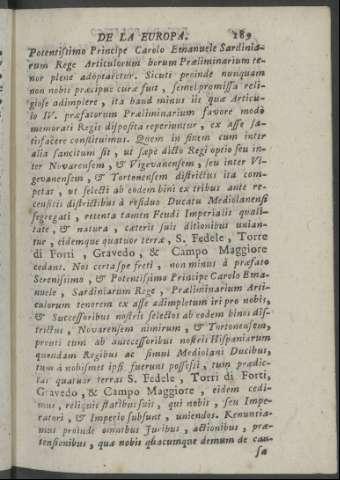 DE LA EUROPA. 189
Potentissimo Principe Carolo Emanuele Sardinia-
rum Rege Articulorum horum Præliminarium te-
nor plene adoptaretur. Sicuti proinde nunquam
non nobis præcipuæ curæ fuit, semel promissa reli-
giose adimplere, ita haud minus iis quæ Articu-
lo IV. præfatorum Præliminarium favore modò
memorati Regis disposita reperiuntur, ex asse sa-
tisfacere constituimus. Quem in finem cum inter
alia sancitum sit, ut sæpè dicto Regi optio seu in-
ter Novarensem, & Vigevanensem, seu inter Vi-
gevanensem, & Tortonensem districtus ita com-
petat, ut selecti ab eodem bini ex tribus ante re-
censitis districtibus à residuo Ducatu Mediolanensi
segregati, retenta tamen Feudi Imperialis quali-
tate, & natura, cæteris suis ditionibus unian-
tur, eidemque quatuor terræ, S. Fedele, Torre
di Forti, Gravedo, & Campo Maggiore
cedant. Nos certa spe freti, non minus à præfato
Serenissimo, & Potentissimo Principe Carolo Ema-
nuele, Sardiniarum Rege, Præliminarium Arti-
culorum tenorem ex asse adimpletum iri pro nobis,
& Successoribus nostris selectos ab eodem binos dis-
trictus, Novarensem nimirum, & Tortonensem,
prouti eum ab antecessoribus nostris Hispaniarum
quendam Regibus ac simul Mediolani Ducibus,
tum à nobismet ipsi fuerunt possessi, tum prædic-
tas quatuor terras S. Fedele, Torri di Forti,
Gravedo, & Campo Maggiore, eidem cedi-
mus, reliquis statibus suis, qui nobis, seu Impe-
ratori, & Imperio subsunt, uniendos. Renuntia-
mus proinde omnibus Juribus, actionibus, præ-
tensionibus, quæ nobis quacumque demum de cau-
sa